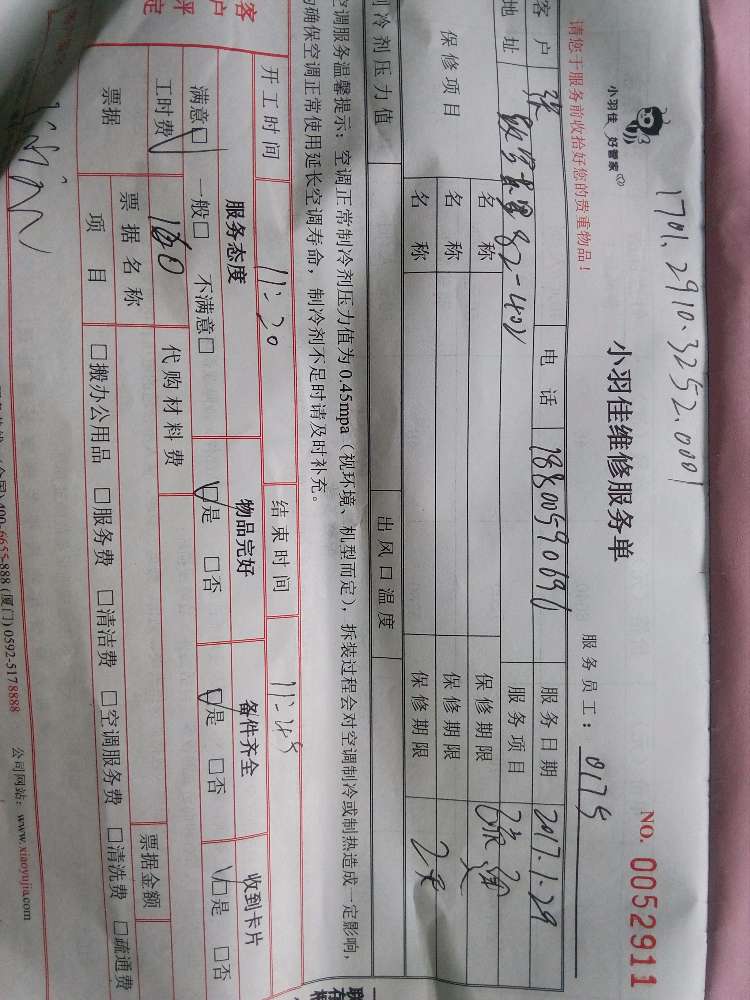 1701.2910.3252.0001
小羽佳 好管家
小羽佳维修服务单
NO. 0052911
请您于服务前收拾好您的贵重物品!
服务员工: 0175
客户 张 电话 18800590696 服务日期 2017.1.29
地址 82-402 服务项目
保修项目 名称 保修期限
名称 保修期限
名称 保修期限
制冷剂压力值 出风口温度
空调服务温馨提示: 空调正常制冷剂压力值为0.45mpa (视环境、机型而定), 拆装过程会对空调制冷或制热造成一定影响,
为确保空调正常使用延长空调寿命, 制冷剂不足时请及时补充。
开工时间 11:20 结束时间 11:45
客户评定
服务态度 物品完好 备件齐全 收到卡片
满意□ 一般□ 不满意□ □是 □否 □是 □否 □是 □否
工时费 160 代购材料费
票据 票据名称 票据金额
项目 □搬办公用品 □服务费 □清洁费 □空调服务费 □清洗费 □疏通费
400-6655-888 (厦门) 0592-5178888 公司网站: www.xiaoyujia.com